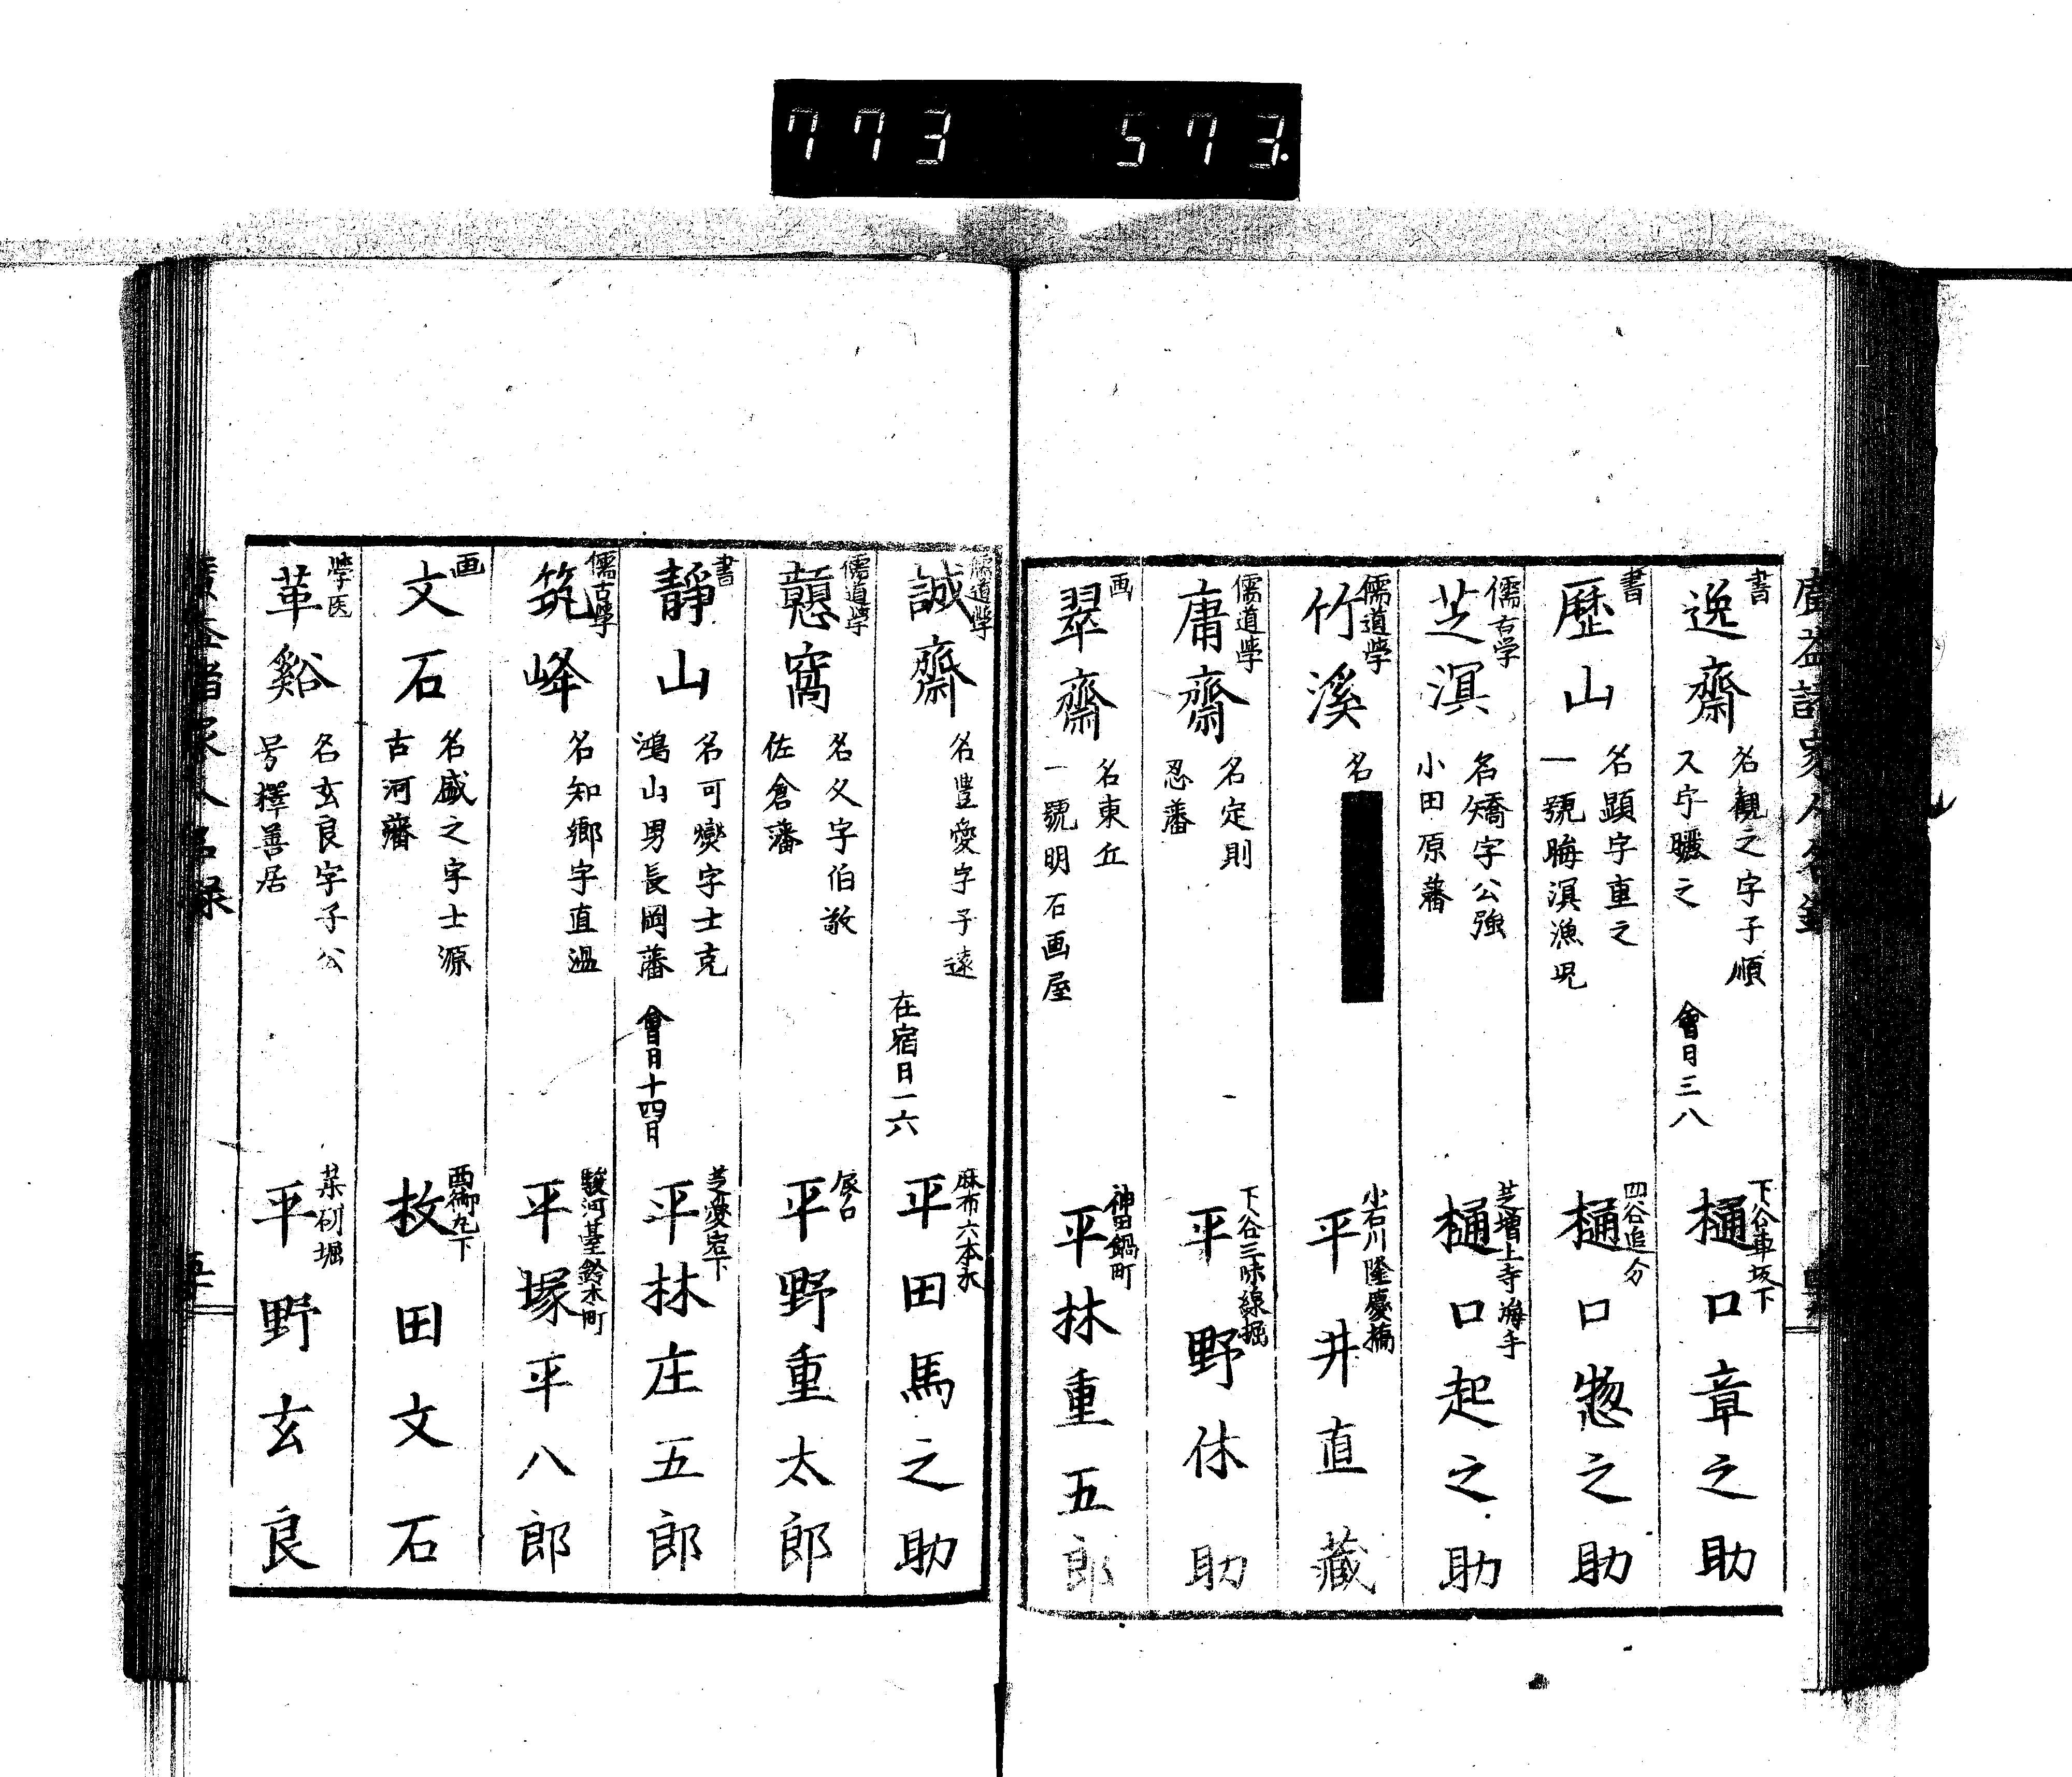 773 573.
書
逸齋
名觀之字子順
又字
之
會日三八
下谷車坂下
樋口章之助
書
歷山
名顕字重之
一號晦溟漁児
四谷追分
樋口惣之助
儒古学
芝溟
名矯字公強
小田原藩
芝増上寺海手
樋口起之助
儒道學
竹溪
名
小石川隆慶橋
平井直藏
儒道學
庸齋
名定則
忍藩
下谷三味線堀
平野休助
画
翠齋
名東丘
一號明石画屋
神田鍋町
平林重五郎
儒道學
誠齋
名豊愛字子遠
在宿日一六
麻布六本木
平田馬之助
儒道學
窩
名乂字伯敬
佐倉藩
平野重太郎
書
靜山
名可爕字士克
鴻山男長岡藩
會日十四日
芝愛宕下
平林庄五郎
儒古學
筑峰
名知郷字直温
駿河臺鈴木町
平塚平八郎
画
文石
名盛之字士源
古河藩
西御丸下
牧田文石
學医
革谿
名玄良字子公
号擇善居
平野玄良
廣益諸家人名録